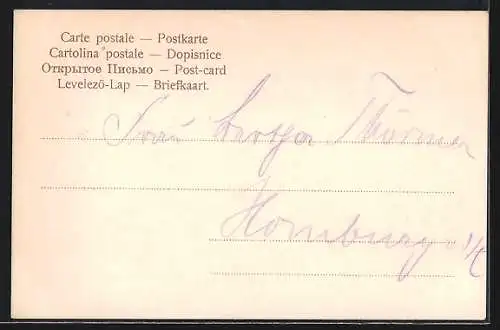 Carte postale — Postkarte
Cartolina postale — Dopisnice
Открытое Письмо — Post-card
Levelezō-Lap — Briefkaart.
Frau Thürmer
Homburg